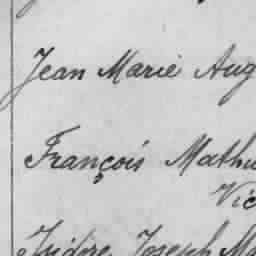 Jean Marie Aug
François Mathu
Vic
Isidore Joseph Ma